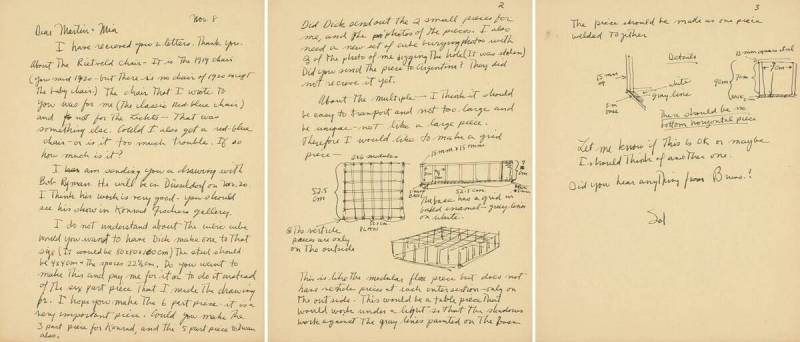 Nov. 8
Dear Martin + Mia
I have recieved your 2 letters. Thank you.
About the Rietveld chair - It is the 1919 chair
(you said 1920 - but there is no chair of 1920 except
the baby chair.) The chair that I wrote to
you was for me (the classic Red-blue chair)
and not for the - That was
something else. Could I also get a red-blue
chair - or is it too much trouble. If so
how much is it?
I am sending you a drawing with
Bob Ryman He will be in Düsseldorf on Nov. 20
I think his work is very good - you should
see his show in Konrad Fischers gallery.
I do not understand about the wire cube
would you want to have Dick make one to that
size (It would be 80x80x80cm) The steel should
be 4x4cm + the spaces Do you want to
make this and pay me for it or to do it instead
of the six part piece that I made the drawing
for. I hope you make the 6 part piece - it is a
very important piece. Could you make the
3 part piece for Konrad, and the 5 part piece
also.
2
Did Dick send out the 2 small pieces for
me, and the photos of the pieces. I also
need a new set of cube burying photos with
of the photo of me digging the hole (It was stolen)
Did you send the piece to Argentina? They did
not recieve it yet.
About the multiple - I think it should
be easy to transport and not too large and
be unique - not like a large piece.
Therefore I would like to make a grid
piece -
modules
52.5
cm
PLAN
15mm x 15mm
52.5 cm
The base has a grid in
baked enamel - gray lines
on white.
The verticle
pieces are only
on the outside
This is like the modular floor piece but does not
have verticle pieces at each intersection - only on
the outside - This would be a table piece that
would work under a light so that the shadows
work against the gray lines painted on the base
3
The piece should be made as one piece
welded together
Details
15 mm
white
gray line
5 mm
15mm square steel
7cm
9cm
7cm
There should be no
bottom horizontal piece
Let me know if this is OK or maybe
I should think of another one.
Did you hear anything from Bruno?
Sol